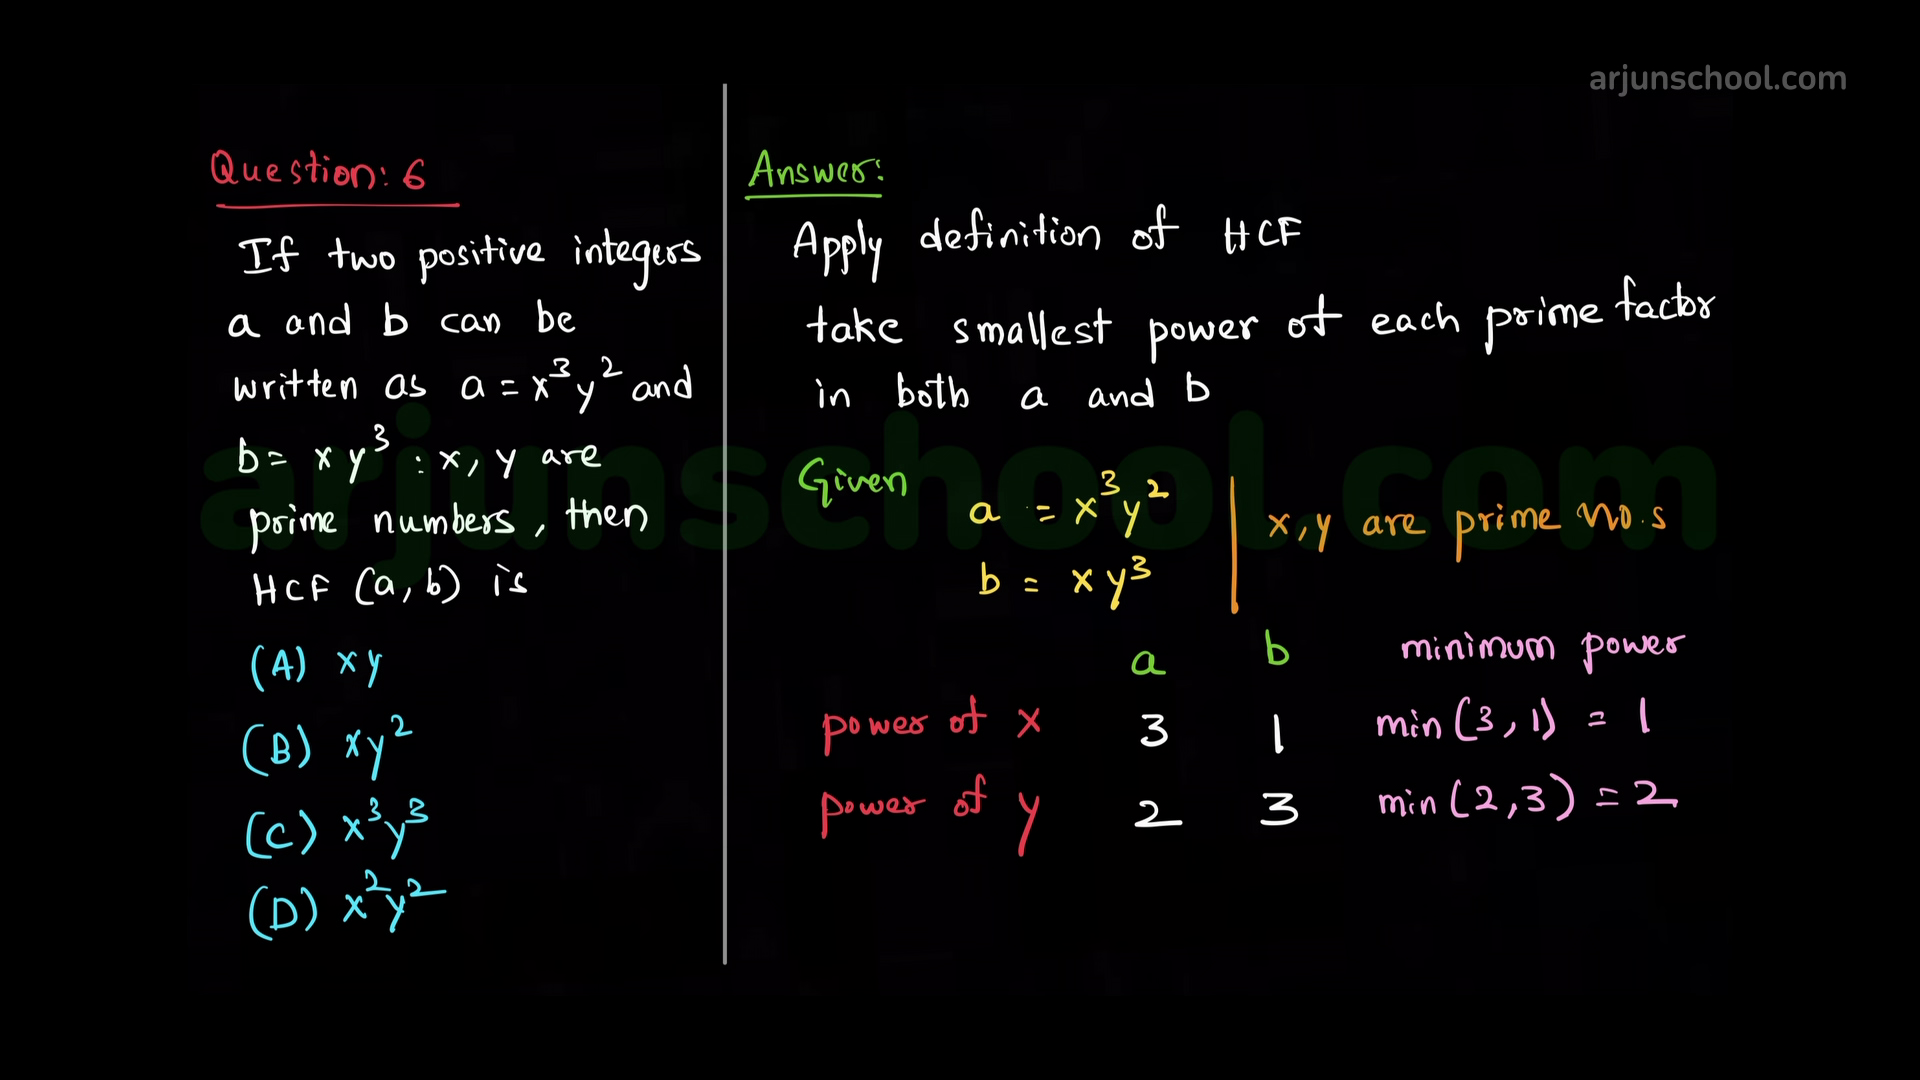 arjunschool.com
Question: 6
If two positive integers
a and b can be
written as a = x³y² and
b = xy³ : x, y are
prime numbers, then
HCF (a, b) is
(A) xy
(B) xy²
(C) x³y³
(D) x²y²
Answer:
Apply definition of HCF
take smallest power of each prime factor
in both a and b
Given
a = x³y²
b = xy³
x, y are prime no.s
a b minimum power
power of x 3 1 min(3, 1) = 1
power of y 2 3 min(2, 3) = 2
arjunschool.com